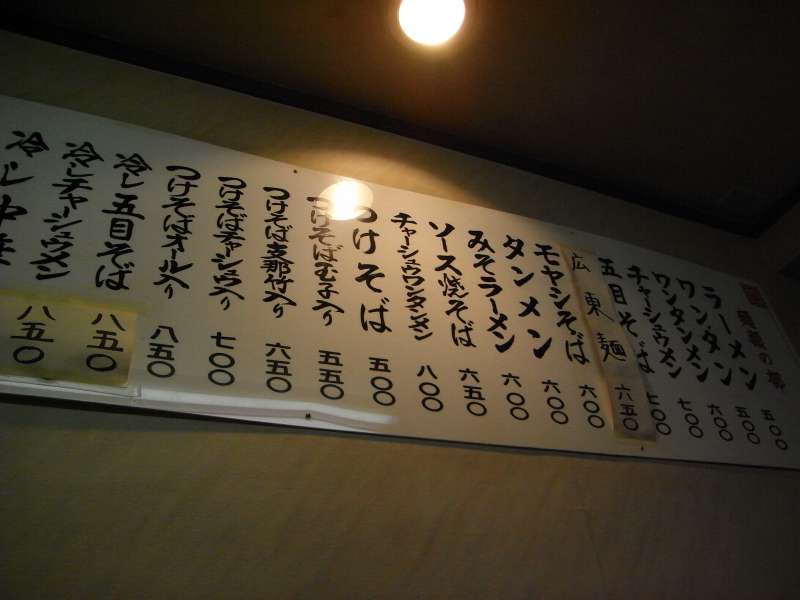 ラーメン 五〇〇
ワンタン 五〇〇
ワンタンメン 六〇〇
チャーシュウメン 七〇〇
五目そば 七〇〇
広東麺 六五〇
モヤシそば 六〇〇
タンメン 六〇〇
みそラーメン 六〇〇
ソース焼そば 六五〇
チャーシュウワンタンメン 八〇〇
つけそば 五〇〇
つけそば玉子入り 五五〇
つけそば支那竹入り 六五〇
つけそばチャーシュウ入り 七〇〇
つけそばオール入り 八五〇
冷し五目そば 八五〇
冷しチャーシュウメン 八五〇
冷し中華